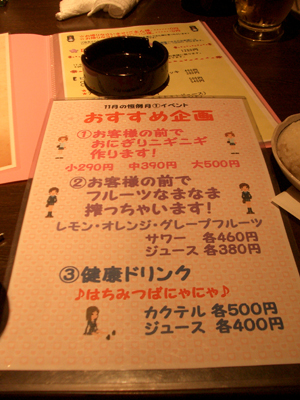 11月の恒例月①イベント
おすすめ企画
①お客様の前で
おにぎりニギニギ
作ります!
小290円 中390円 大500円
②お客様の前で
フルーツなまなま
搾っちゃいます!
レモン・オレンジ・グレープフルーツ
サワー 各460円
ジュース 各380円
③健康ドリンク
♪はちみつばにゃにゃ♪
カクテル 各500円
ジュース 各400円